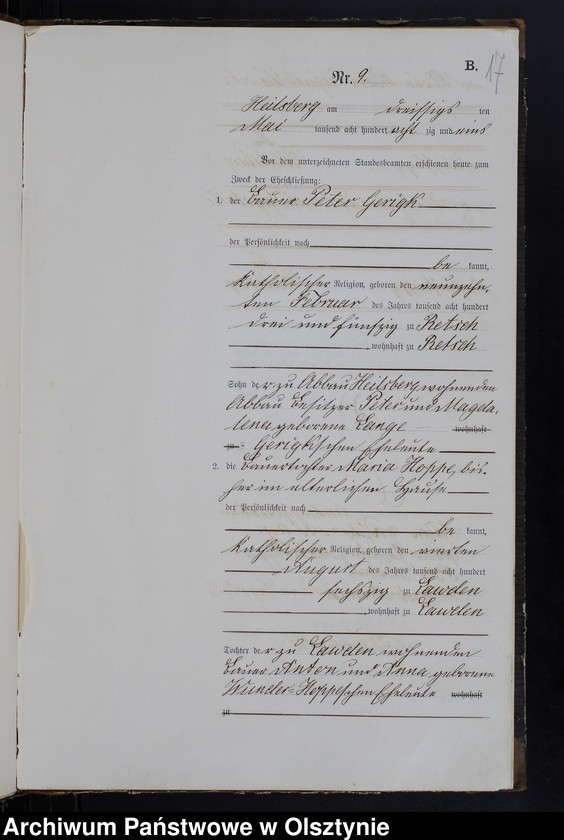 B.
17
Nr. 9.
Heilsberg am dreissigs ten
Mai tausend acht hundert acht zig und eins
Vor dem unterzeichneten Standesbeamten erschienen heute zum
Zweck der Eheschließung:
1. der Bauer Peter Gerigk
der Persönlichkeit nach
be kannt,
katholischer Religion, geboren den neunzehn-
ten Februar des Jahres tausend acht hundert
drei und fünfzig zu Retsch
, wohnhaft zu Retsch
Sohn der zu Abbau Heilsberg wohnenden
Abbau Besitzer Peter und Magda-
lena geborene Lange wohnhaft
zu Gerigkschen Eheleute
2. die Bauertochter Maria Hoppe, bis-
her im elterlichen Hause
der Persönlichkeit nach
be kannt,
katholischer Religion, geboren den vierten
August des Jahres tausend acht hundert
sechszig zu Lawden
, wohnhaft zu Lawden
Tochter der zu Lawden wohnenden
Bauer Anton und Anna geborene
Wunder-Hoppeschen Eheleute wohnhaft
zu
Archiwum Państwowe w Olsztynie